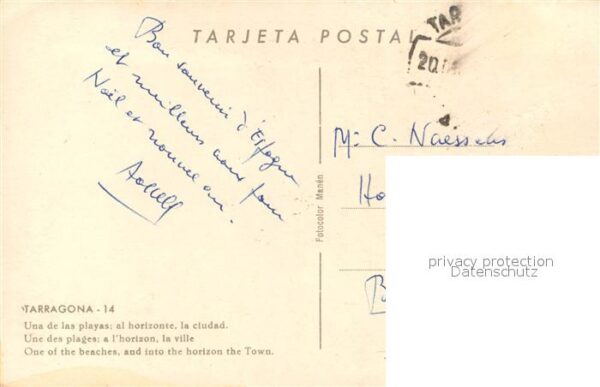 TARJETA POSTAL
TAR
20
Bon souvenir d'Espagne
et meilleurs vœux pour
Noël et nouvel an.
M: C. Naessens
Ho
B
Fotocolor Manén
privacy protection
Datenschutz
TARRAGONA - 14
Una de las playas; al horizonte, la ciudad.
Une des plages; a l'horizon, la ville
One of the beaches, and into the horizon the Town.